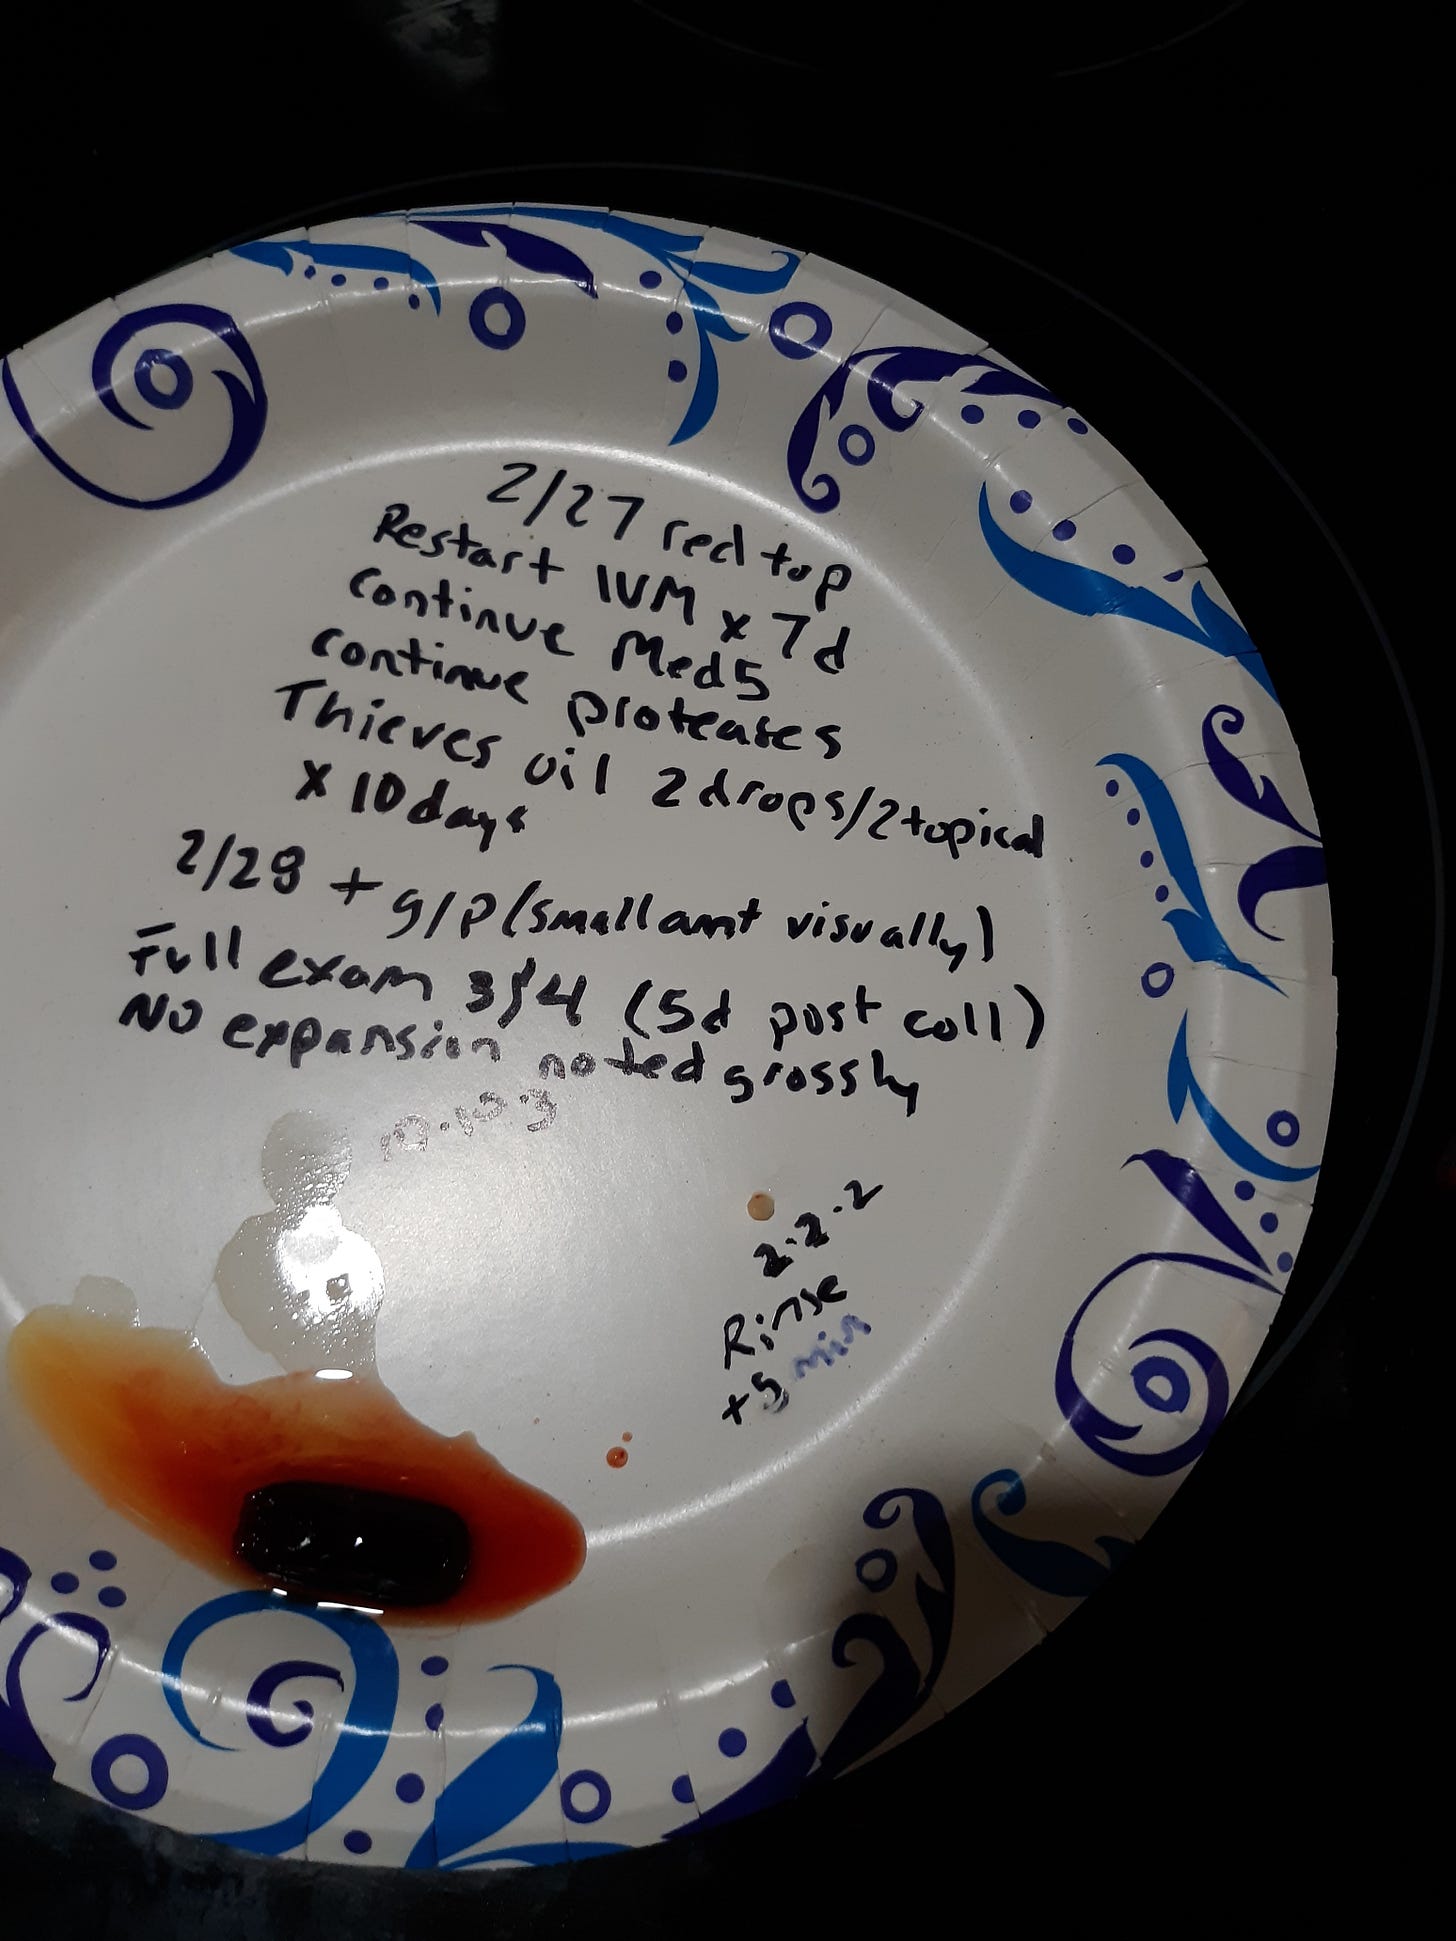 2/27 red top
Restart IVM x 7d
continue Med5
continue proteases
Thieves oil 2drops/2topical
x 10days
2/28 + g/p (small amt visually)
Full exam 3/4 (5d post coll)
No expansion noted grossly
10.10.3
2.2.2
Rinse
+5 min